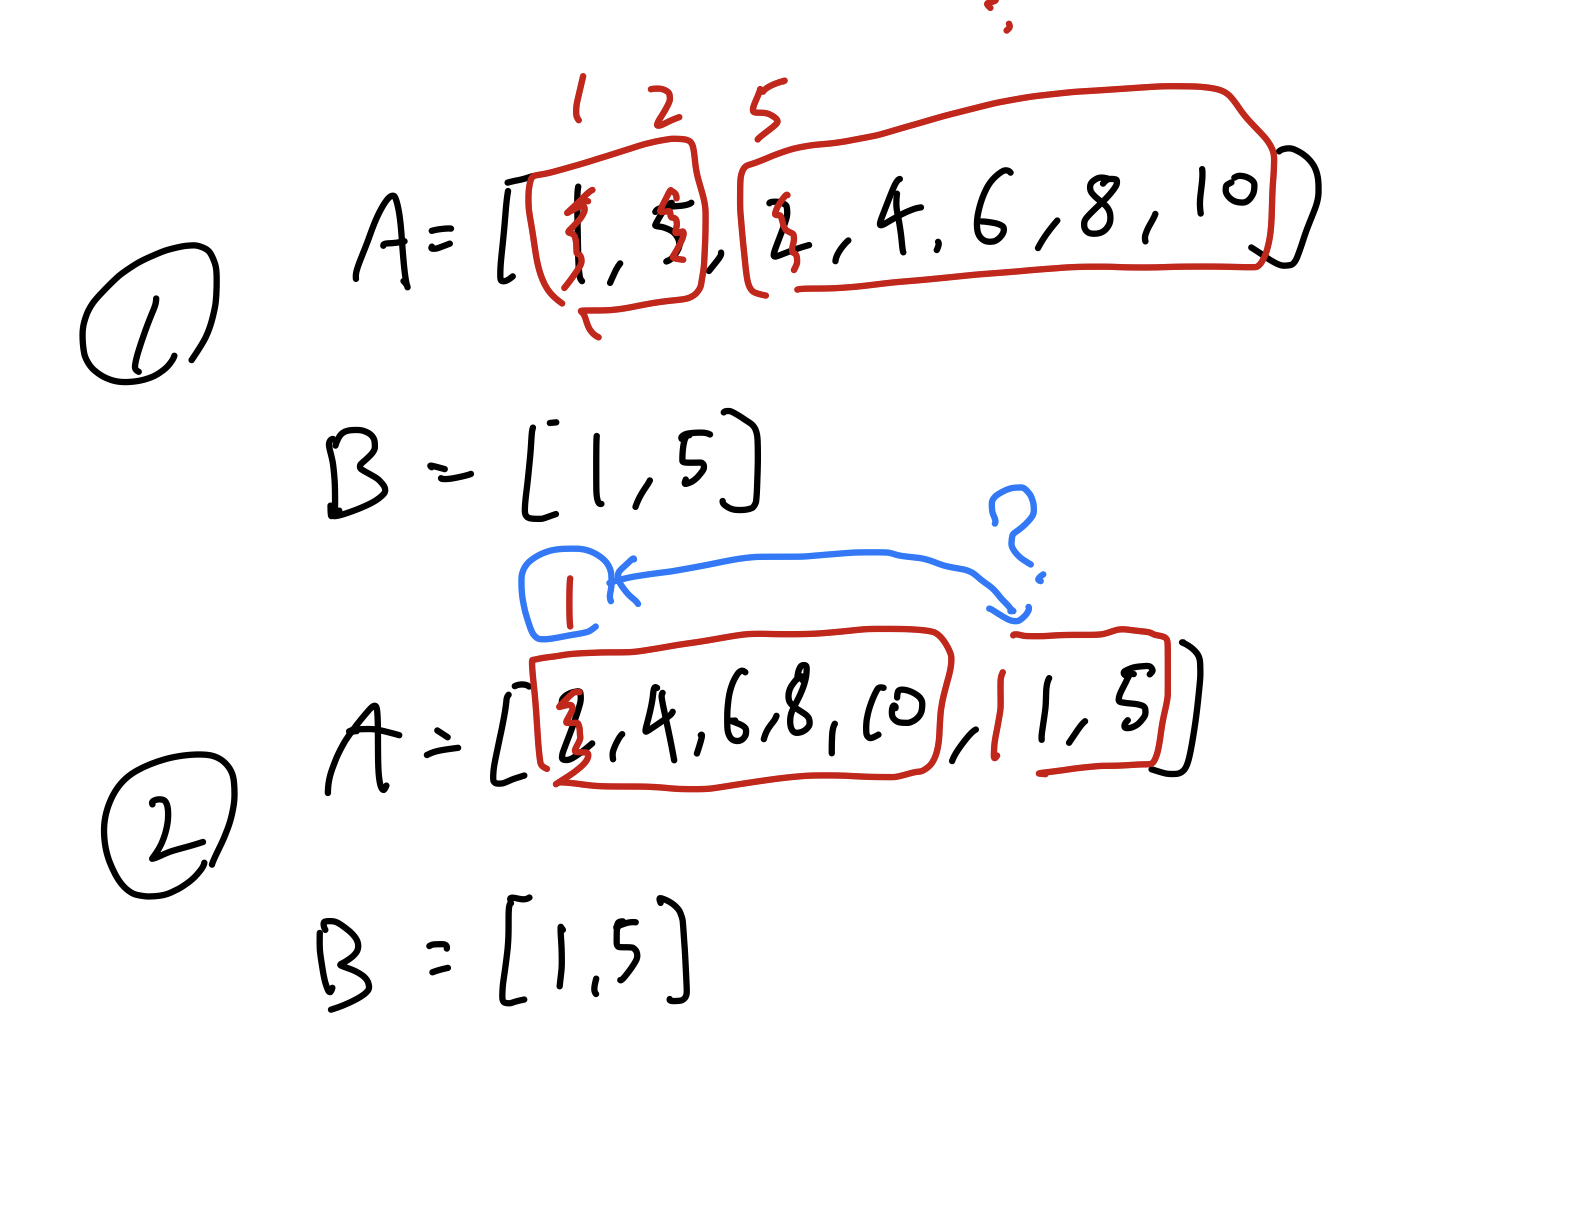 1 2 5
① A = [1, 5, 2, 4, 6, 8, 10]
B = [1, 5]
?
1
② A = [2, 4, 6, 8, 10, 1 1, 5]
B = [1, 5]